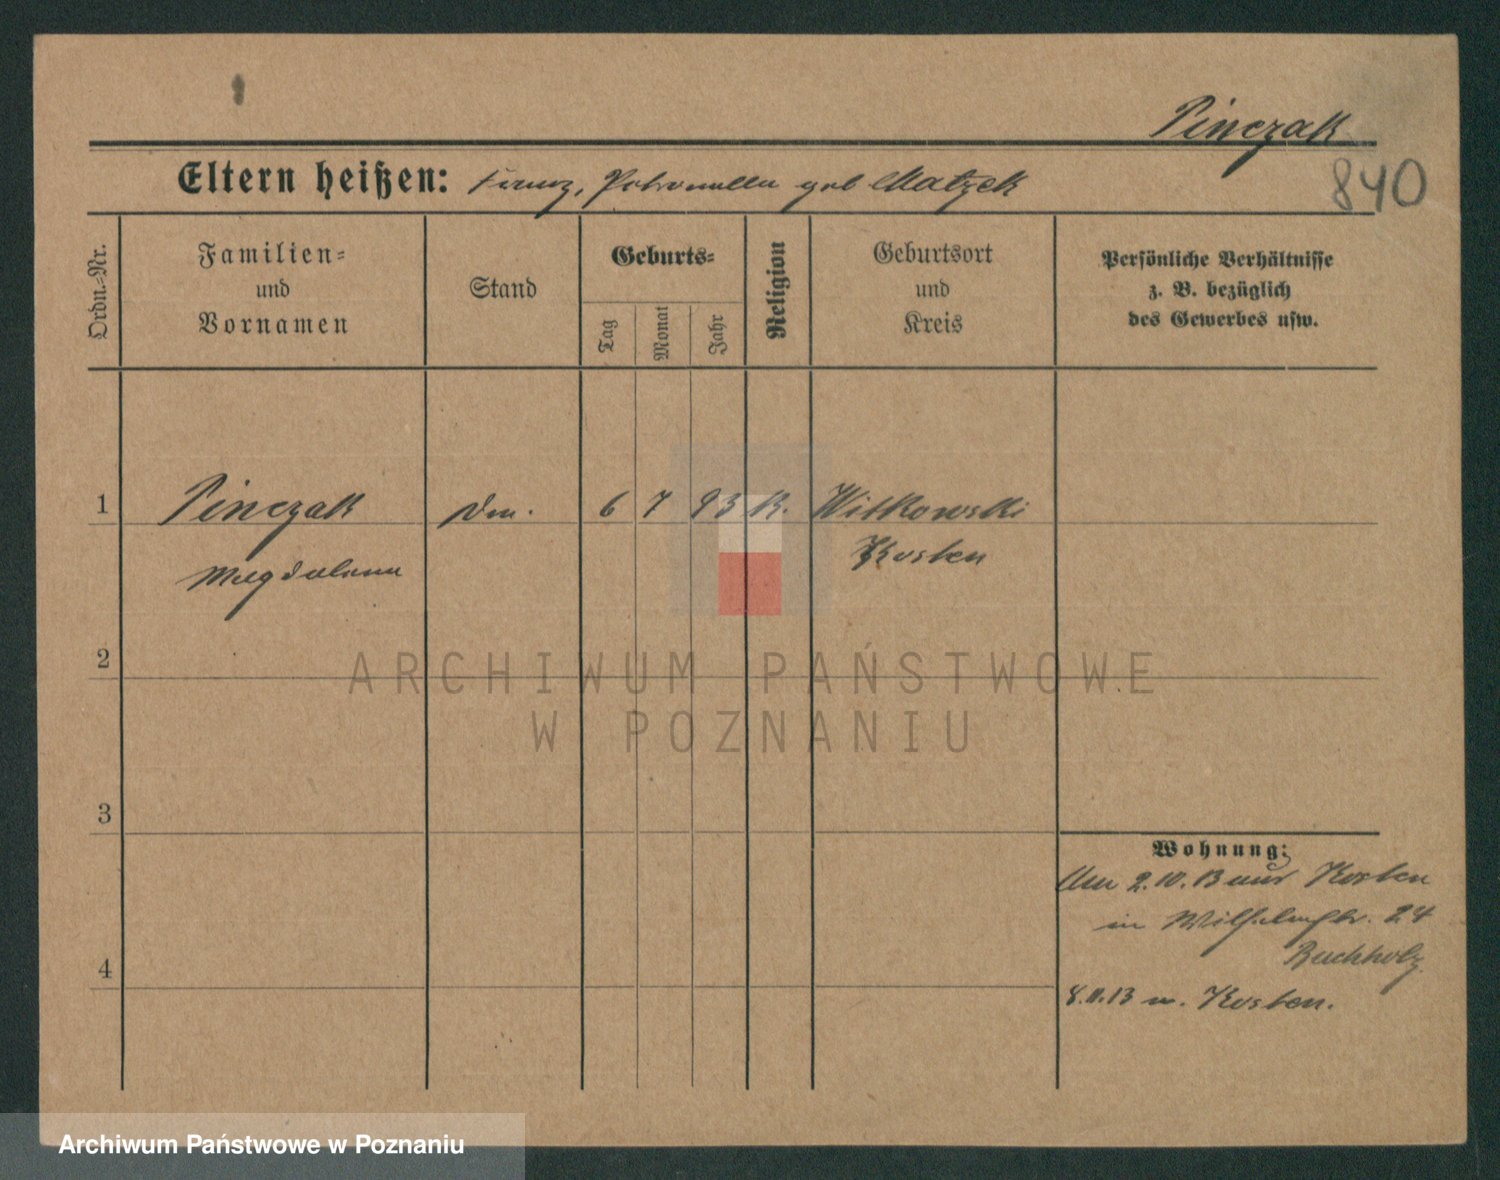 Pinczak
840
Eltern heißen: Franz, Petronella geb Matzek
Ordn.=Nr.
Familien=
und
Vornamen
Stand
Geburts=
Tag
Monat
Jahr
Religion
Geburtsort
und
Kreis
Persönliche Verhältnisse
z. B. bezüglich
des Gewerbes usw.
1
Pinczak 6 7 93 K. Witkowski
Magdalena Kosten
2
ARCHIWUM PAŃSTWOWE
W POZNANIU
3
Wohnung:
Am 2.10.13 aus Kosten
in Wilhelmstr. 24
Buchholz
4
8.11.13 n. Kosten.
Archiwum Państwowe w Poznaniu